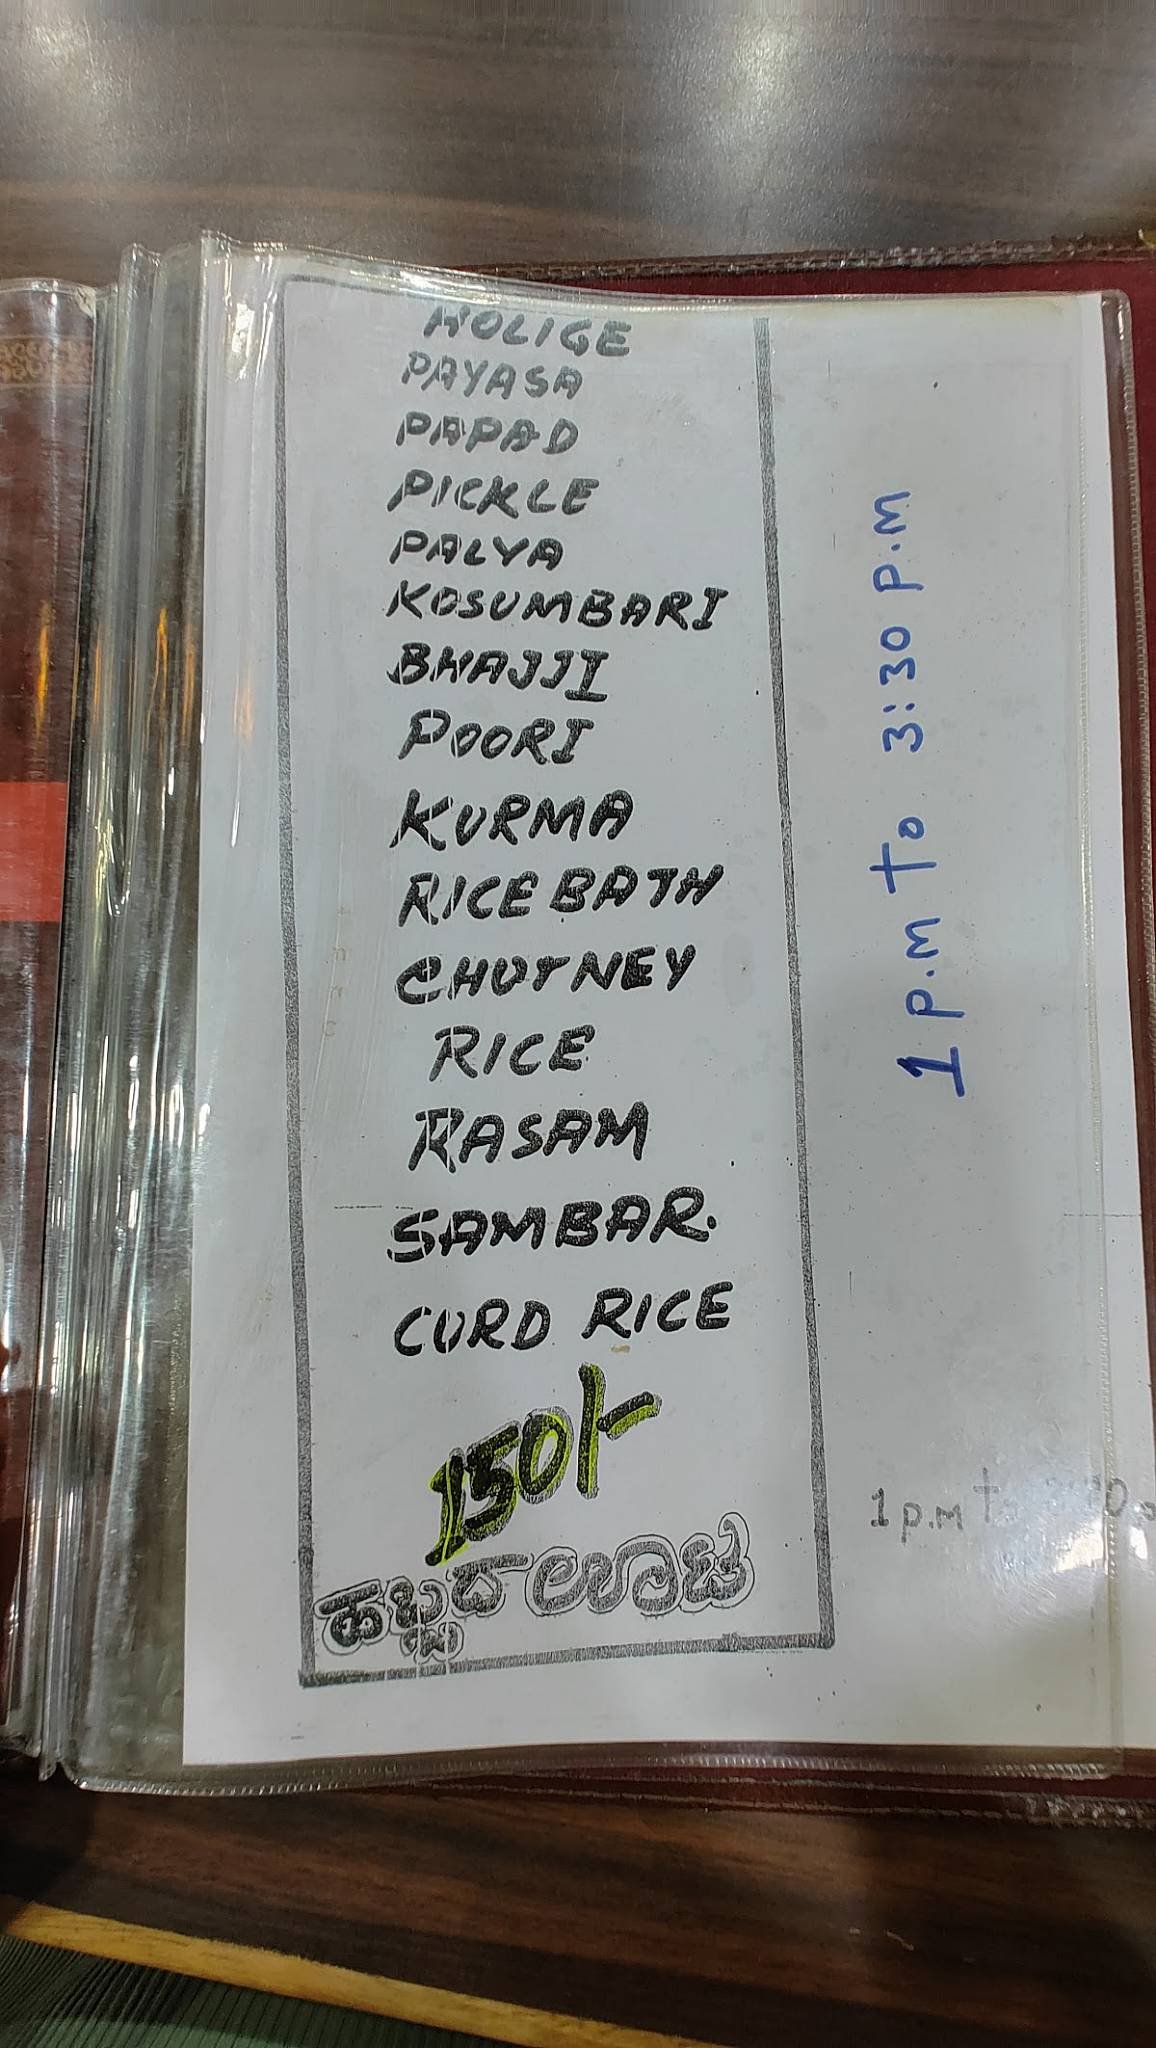 HOLIGE
PAYASA
PAPAD
PICKLE
PALYA
KOSUMBARI
BHAJJI
POORI
KURMA
RICE BATH
CHUTNEY
RICE
RASAM
SAMBAR.
CURD RICE
150/-
ಹಬ್ಬದ ಊಟ
1 P.M To 3:30 P.M
1 p.m